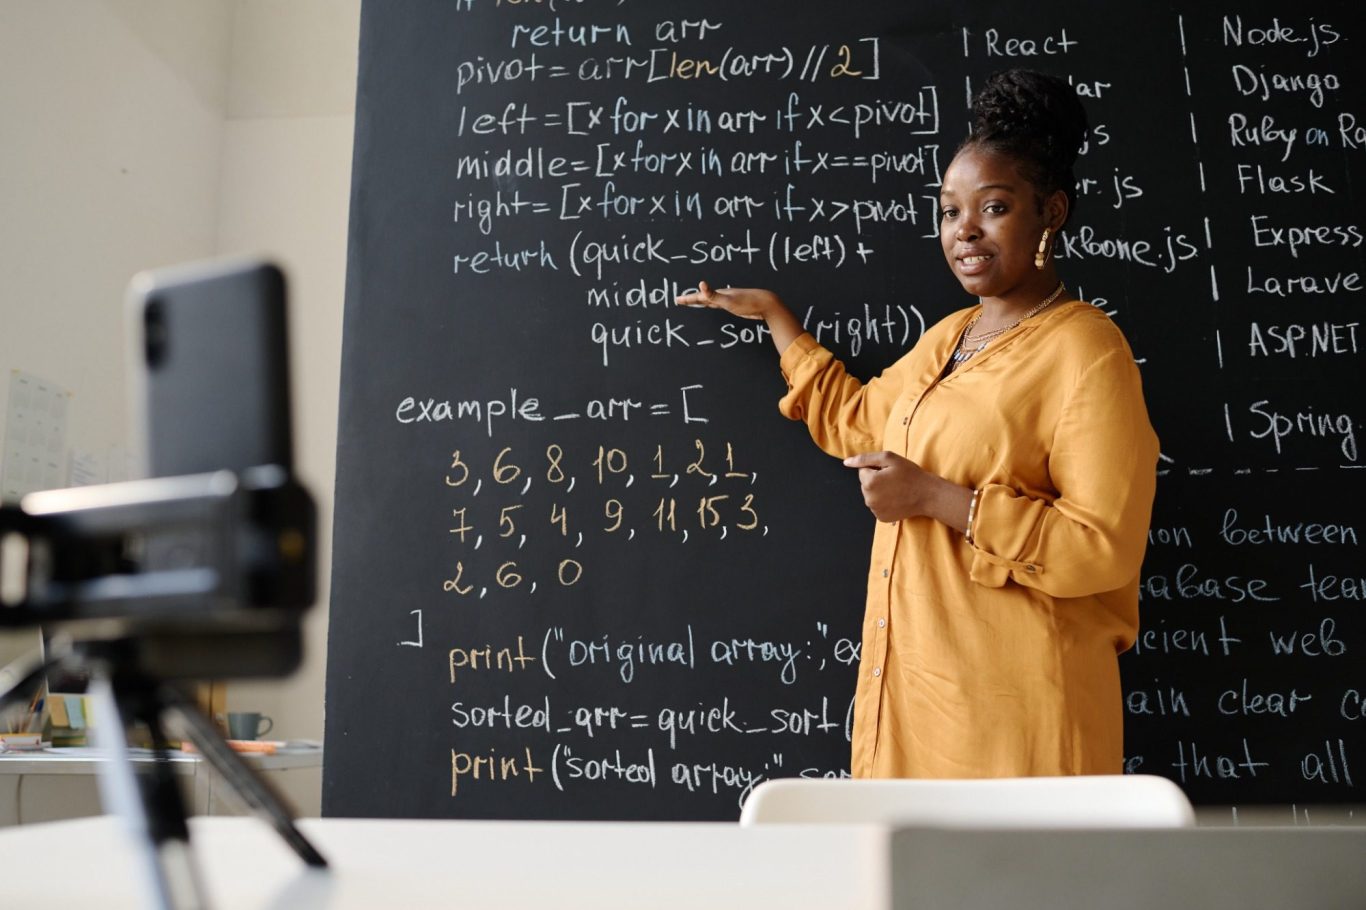 return arr
pivot = arr[len(arr)//2]
left = [x for x in arr if x < pivot]
middle = [x for x in arr if x == pivot]
right = [x for x in arr if x > pivot]
return (quick_sort (left) +
middle
quick_sor (right))
example_arr = [
3, 6, 8, 10, 1, 2, 1,
7, 5, 4, 9, 11, 15, 3,
2, 6, 0
]
print ("original array:", ex
sorted_arr = quick_sort (
print ("sorted array:"
| React
ar
js
r.js
ckbone.js
| Node.js
| Django
| Ruby on Ra
| Flask
| Express
| Larave
| ASP.NET
| Spring.
ion between
tabase tea
icient web
ain clear
that all